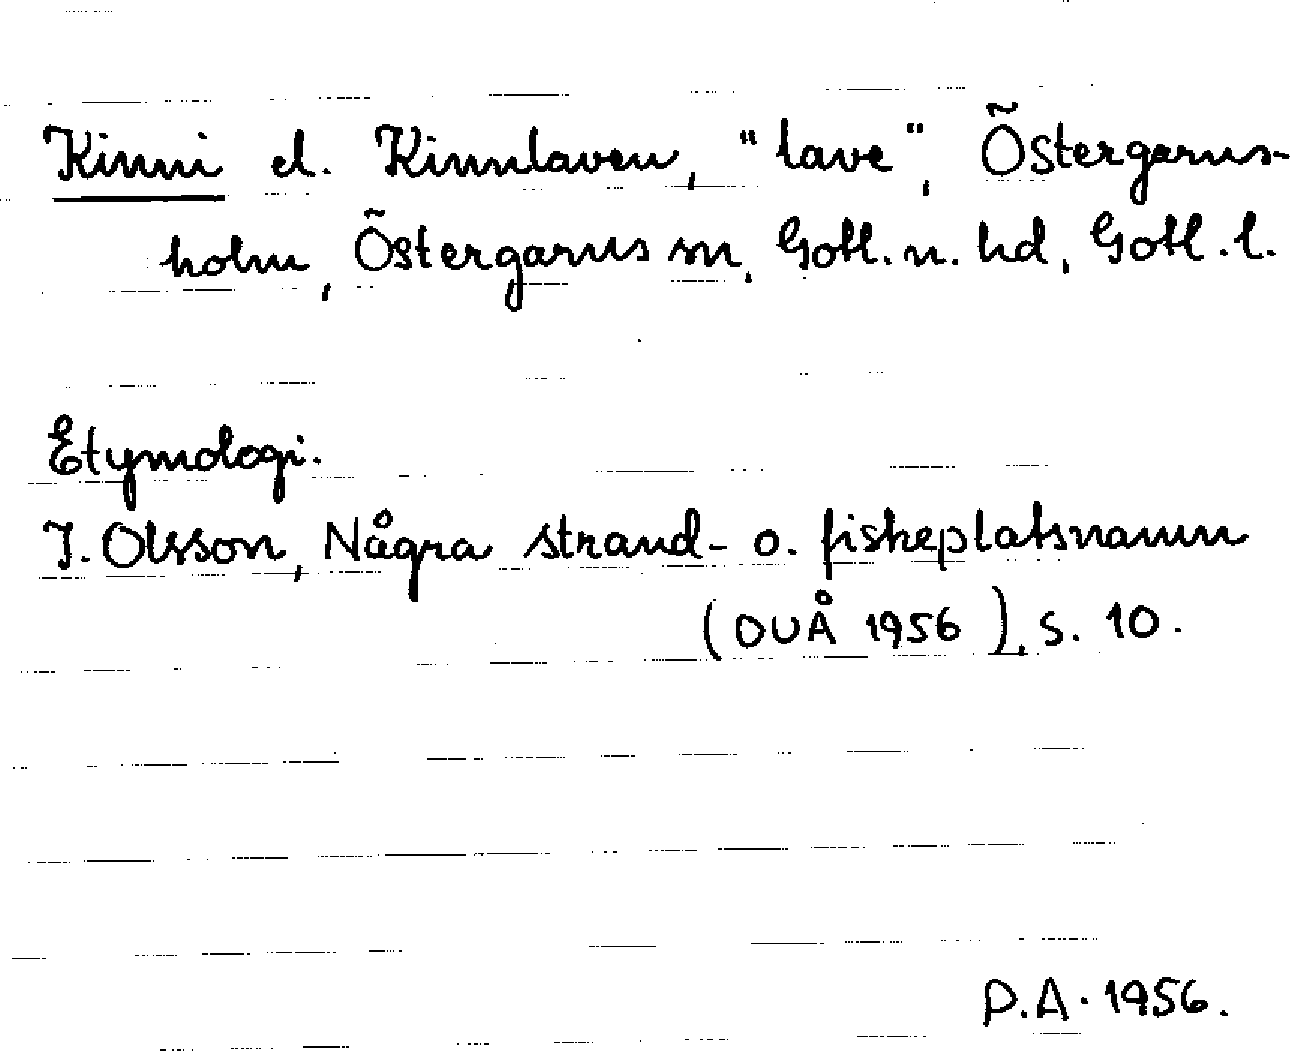 Kinni el. Kinnlaven, "lave", Östergarns-
holm, Östergarns sn, Gotl. n. hd, Gotl. l.
Etymologi:
I. Olsson, Några strand- o. fiskeplatsnamn
(OUÅ 1956), s. 10.
P.A. 1956.